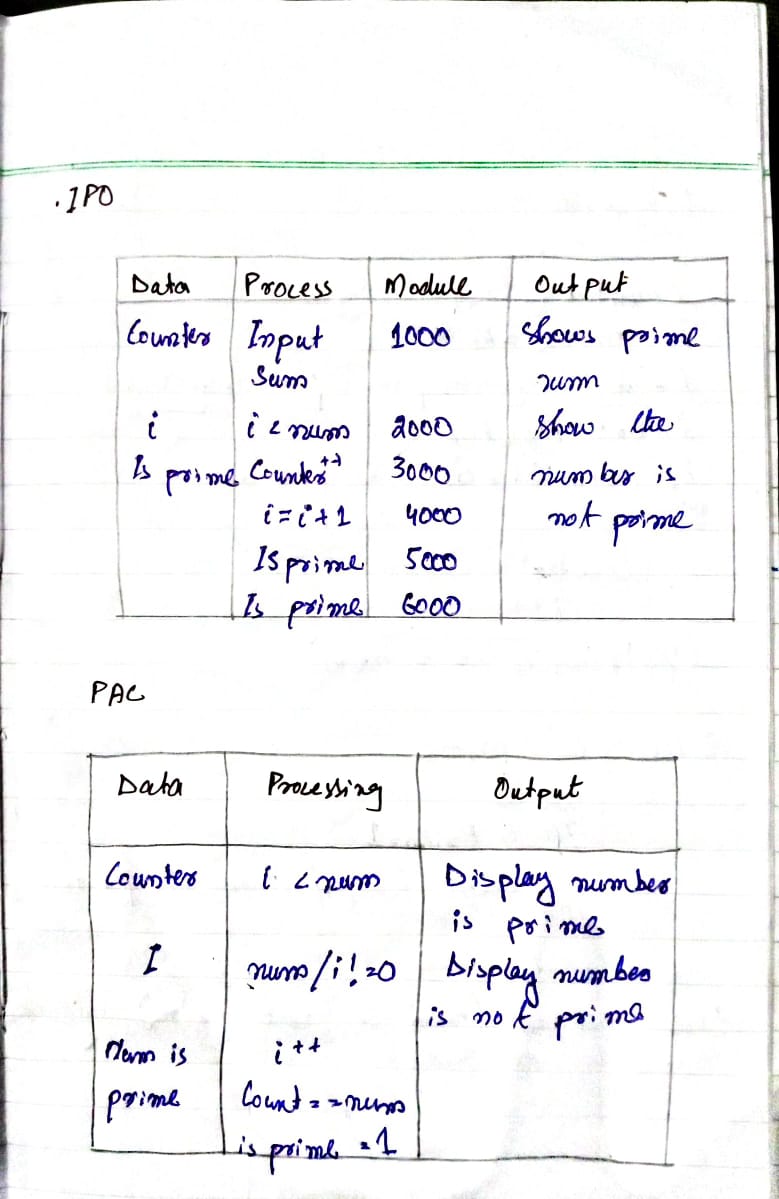 . IPO
Data Process Module Output
Counter Input 1000 Shows prime
Sum num
i i < num 2000 Show the
Is prime Counter++ 3000 number is
i = i + 1 4000 not prime
Is prime 5000
Is prime 6000
PAC
Data Processing Output
Counter i < num Display number
is prime
I num/i!=0 Display number
is not prime
Num is i++
prime Count==num
is prime =1